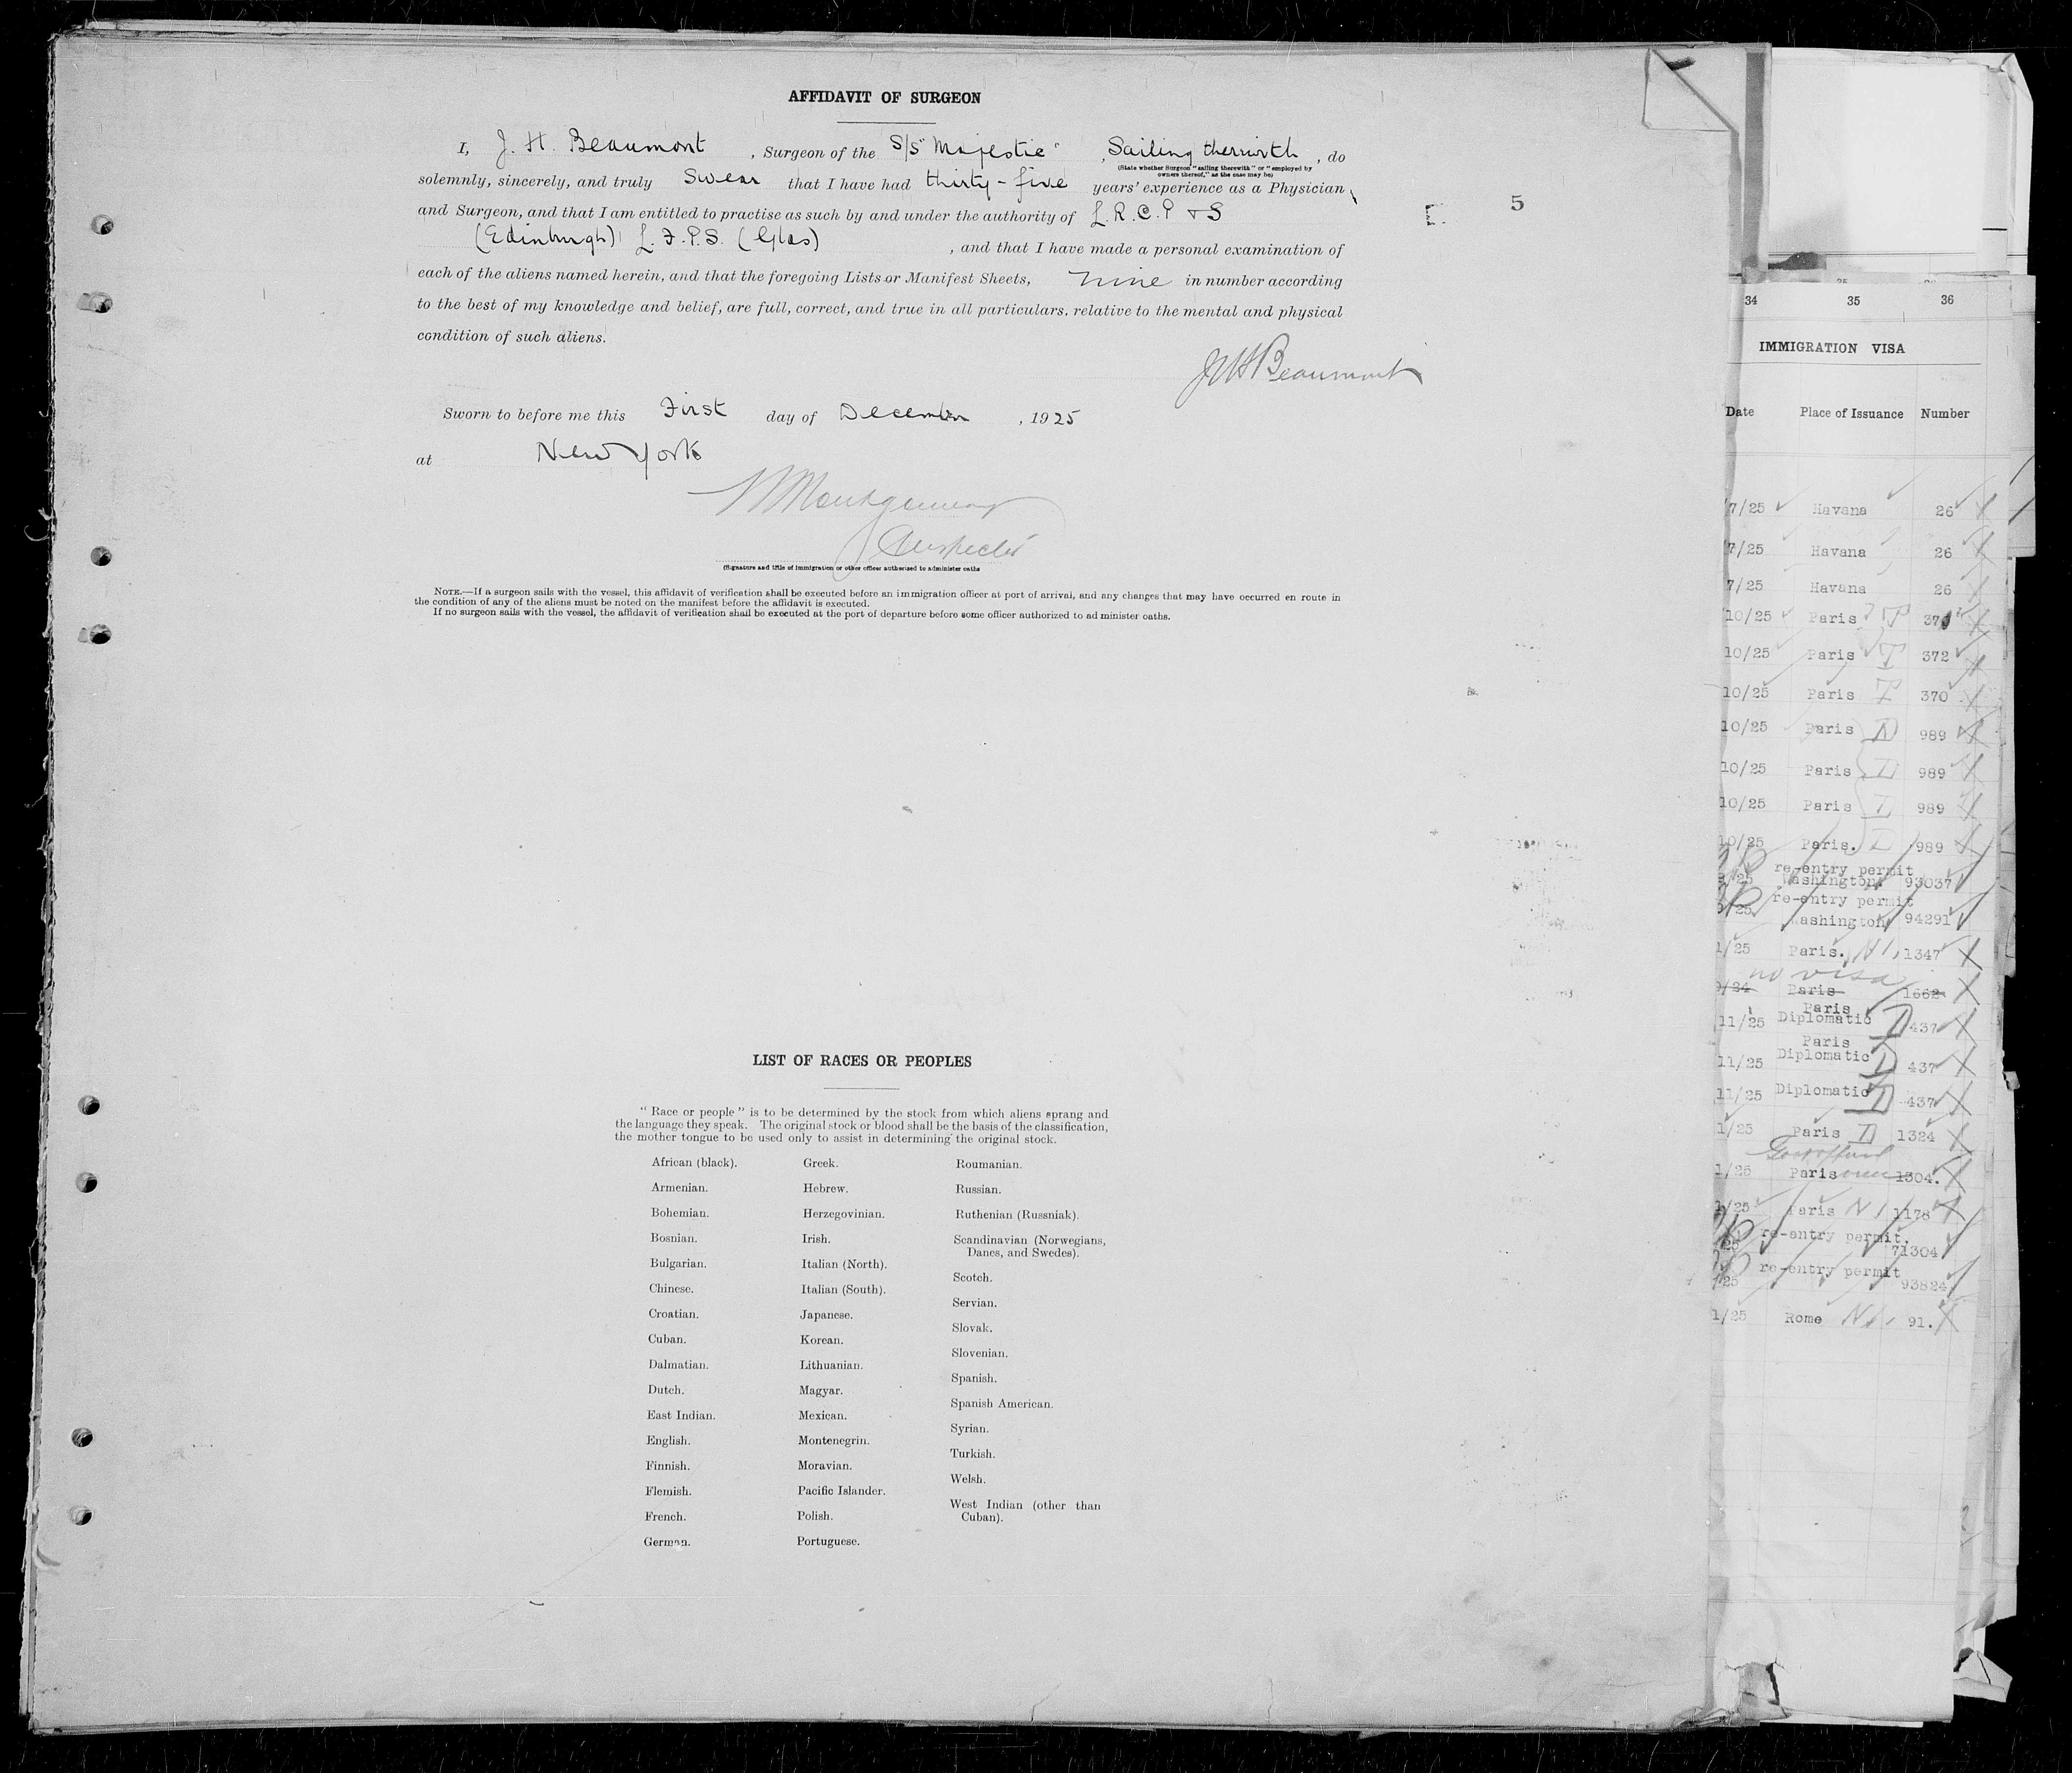 AFFIDAVIT OF SURGEON
I, J. H. Beaumont , Surgeon of the S/S "Majestic" , Sailing therewith , do
(State whether Surgeon "sailing therewith" or "employed by
owners thereof," as the case may be)
solemnly, sincerely, and truly Swear that I have had thirty-five years' experience as a Physician
and Surgeon, and that I am entitled to practise as such by and under the authority of L.R.C.P & S
(Edinburgh) L.F.P.S. (Glas) , and that I have made a personal examination of
each of the aliens named herein, and that the foregoing Lists or Manifest Sheets, nine in number according
to the best of my knowledge and belief, are full, correct, and true in all particulars. relative to the mental and physical
condition of such aliens.
J H Beaumont
Sworn to before me this First day of December , 1925
at New York
Montgomery
Inspector
(Signature and title of immigration or other officer authorised to administer oaths
NOTE.—If a surgeon sails with the vessel, this affidavit of verification shall be executed before an immigration officer at port of arrival, and any changes that may have occurred en route in
the condition of any of the aliens must be noted on the manifest before the affidavit is executed.
If no surgeon sails with the vessel, the affidavit of verification shall be executed at the port of departure before some officer authorized to administer oaths.
5
LIST OF RACES OR PEOPLES
"Race or people" is to be determined by the stock from which aliens sprang and
the language they speak. The original stock or blood shall be the basis of the classification,
the mother tongue to be used only to assist in determining the original stock.
African (black).
Armenian.
Bohemian.
Bosnian.
Bulgarian.
Chinese.
Croatian.
Cuban.
Dalmatian.
Dutch.
East Indian.
English.
Finnish.
Flemish.
French.
German.
Greek.
Hebrew.
Herzegovinian.
Irish.
Italian (North).
Italian (South).
Japanese.
Korean.
Lithuanian.
Magyar.
Mexican.
Montenegrin.
Moravian.
Pacific Islander.
Polish.
Portuguese.
Roumanian.
Russian.
Ruthenian (Russniak).
Scandinavian (Norwegians,
Danes, and Swedes).
Scotch.
Servian.
Slovak.
Slovenian.
Spanish.
Spanish American.
Syrian.
Turkish.
Welsh.
West Indian (other than
Cuban).
34 35 36
IMMIGRATION VISA
Date Place of Issuance Number
7/25 Havana 26
7/25 Havana 26
7/25 Havana 26
10/25 Paris
10/25 Paris 372
10/25 Paris 370
10/25 Paris 989
10/25 Paris 989
10/25 Paris 989
10/25 Paris. 989
re-entry permit
/25 Washington. 93037
re-entry permit
/25 Washington 94291
1/25 Paris. 1347
no visa
9/24 Paris 1662
Paris
11/25 Diplomatic 437
Paris
11/25 Diplomatic 437
11/25 Diplomatic 437
1/25 Paris 1324
1/25 Paris 1304.
1/25 Paris 1178
re-entry permit.
/25 71304
re-entry permit
/25 93824
1/25 Rome 91.